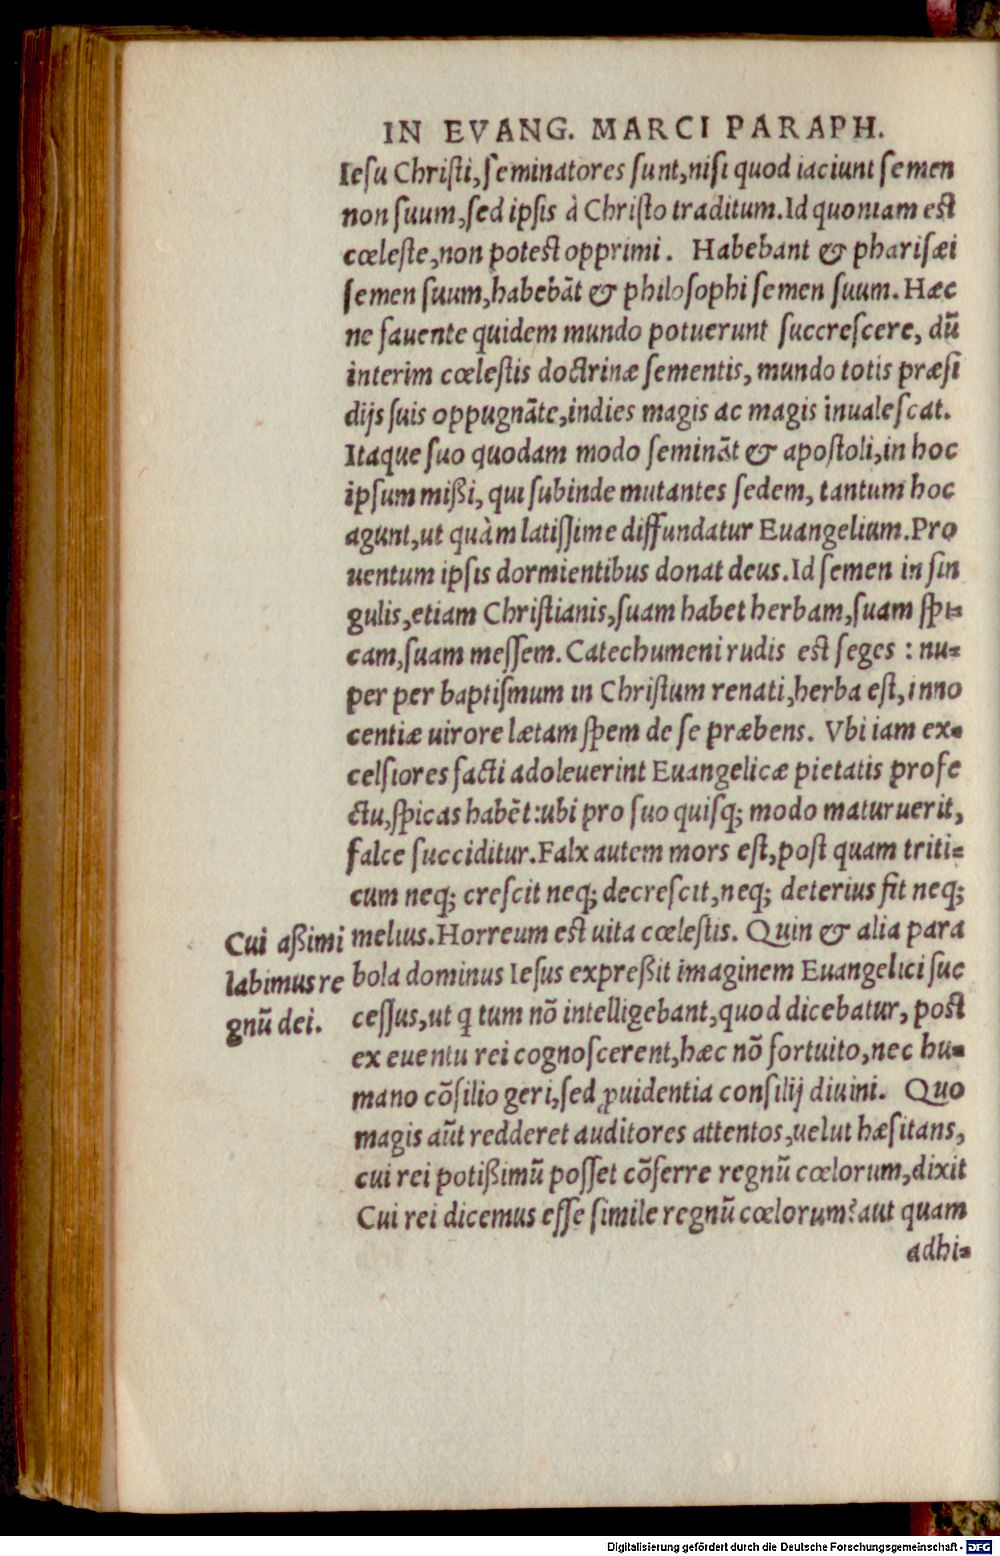 IN EVANG. MARCI PARAPH.
Iesu Christi, seminatores sunt, nisi quod iaciunt semen
non suum, sed ipsis à Christo traditum. Id quoniam est
cœleste, non potest opprimi. Habebant & pharisæi
semen suum, habebāt & philosophi semen suum. Hæc
ne fauente quidem mundo potuerunt succrescere, dū
interim cœlestis doctrinæ sementis, mundo totis præsi
dijs suis oppugnāte, indies magis ac magis inualescat.
Itaque suo quodam modo semināt & apostoli, in hoc
ipsum mißi, qui subinde mutantes sedem, tantum hoc
agunt, ut quàm latissime diffundatur Euangelium. Pro
uentum ipsis dormientibus donat deus. Id semen in sin
gulis, etiam Christianis, suam habet herbam, suam spi-
cam, suam messem. Catechumeni rudis est seges : nu-
per per baptismum in Christum renati, herba est, inno
centiæ uirore lætam spem de se præbens. Vbi iam ex-
celsiores facti adoleuerint Euangelicæ pietatis profe
ctu, spicas habēt: ubi pro suo quisq; modo maturuerit,
falce succiditur. Falx autem mors est, post quam triti-
cum neq; crescit neq; decrescit, neq; deterius fit neq;
melius. Horreum est uita cœlestis. Quin & alia para
bola dominus Iesus expreßit imaginem Euangelici suc
cessus, ut q tum nō intelligebant, quod dicebatur, post
ex euentu rei cognoscerent, hæc nō fortuito, nec hu-
mano cōsilio geri, sed ꝓuidentia consilij diuini. Quo
magis aūt redderet auditores attentos, uelut hæsitans,
cui rei potißimū posset cōferre regnū cœlorum, dixit
Cui rei dicemus esse simile regnū cœlorum? aut quam
adhi-
Cui aßimi
labimus re
gnū dei.
Digitalisierung gefördert durch die Deutsche Forschungsgemeinschaft - DFG